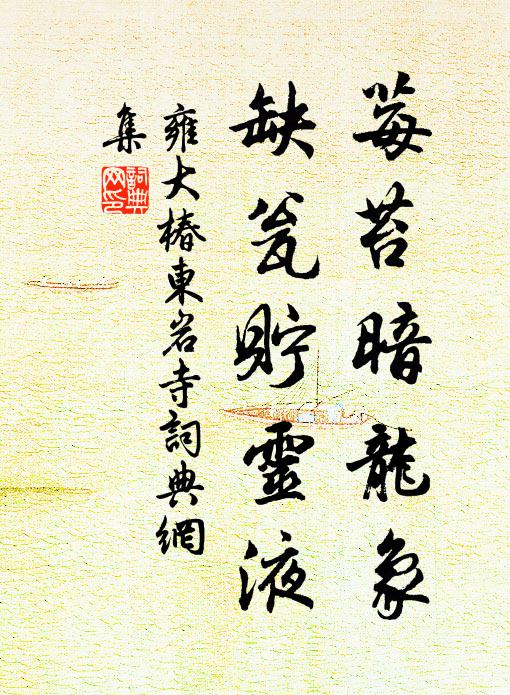 莓苔暗龍象
缺瓮貯靈液
雍大椿東岩寺詞典網
集
詞典網印